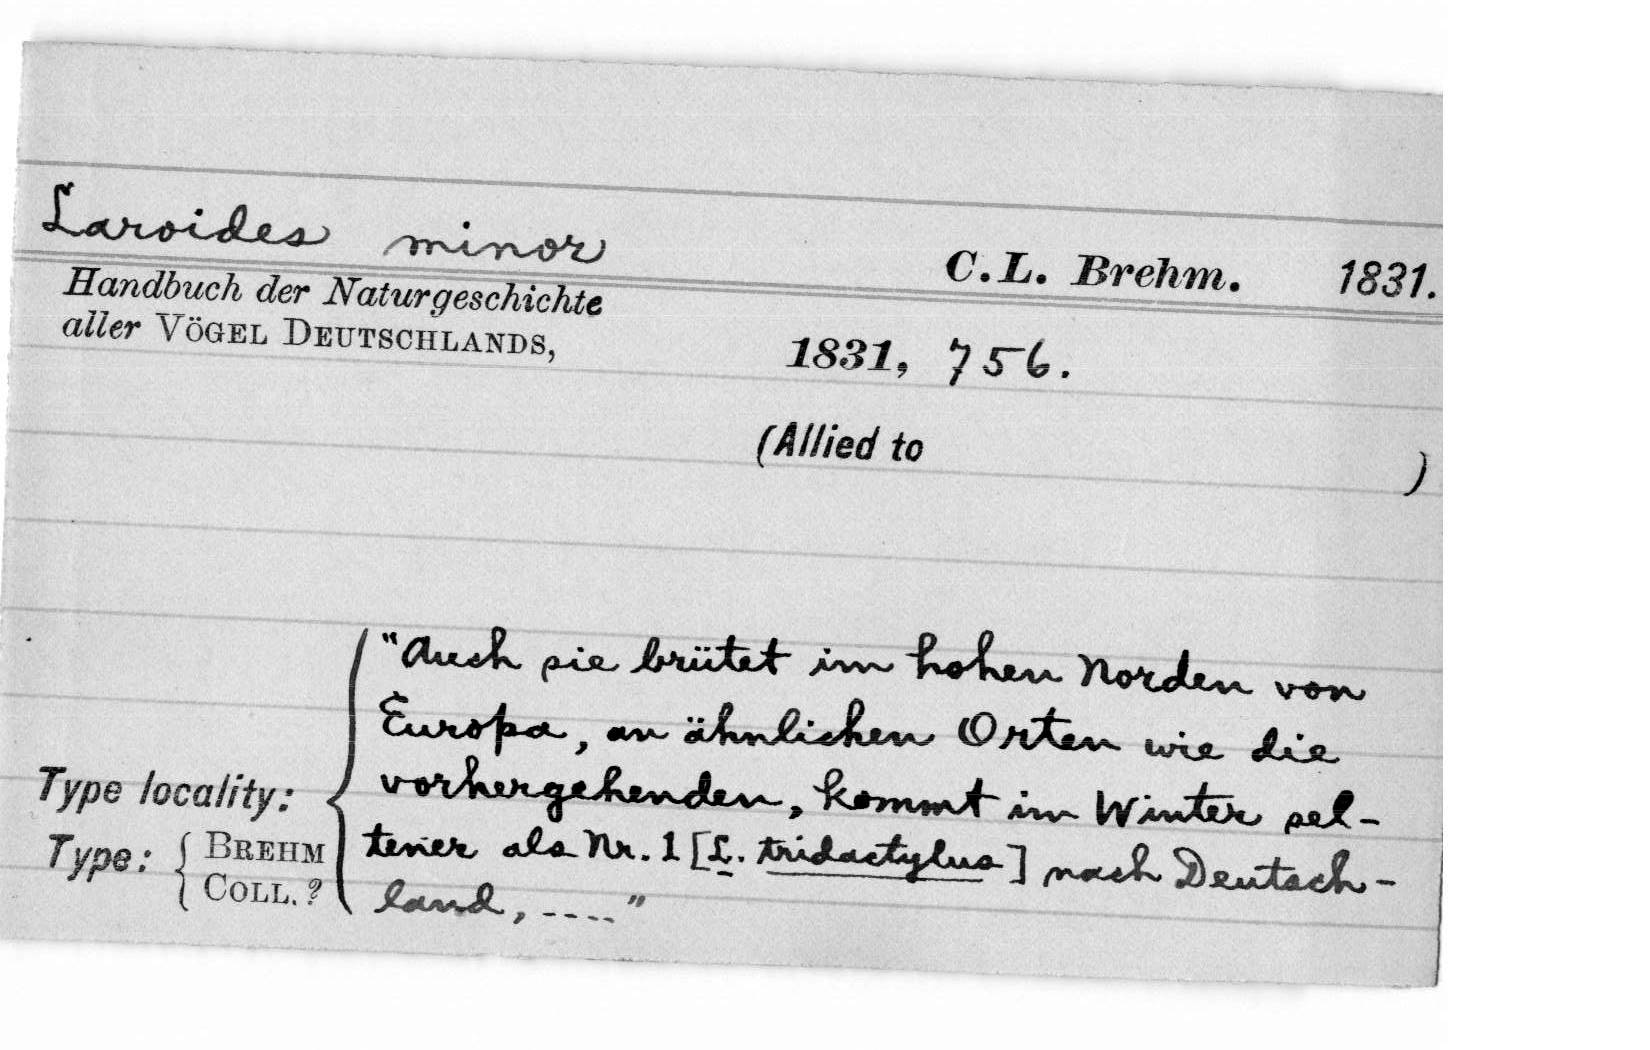 Laroides minor C. L. Brehm. 1831.
Handbuch der Naturgeschichte
aller VÖGEL DEUTSCHLANDS, 1831, 756.
(Allied to )
"Auch sie brütet im hohen Norden von
Europa, an ähnlichen Orten wie die
Type locality: vorhergehenden, kommt im Winter sel-
Type: { BREHM COLL. ? tener als Nr. 1 [L. tridactylus] nach Deutsch-
land, ----"